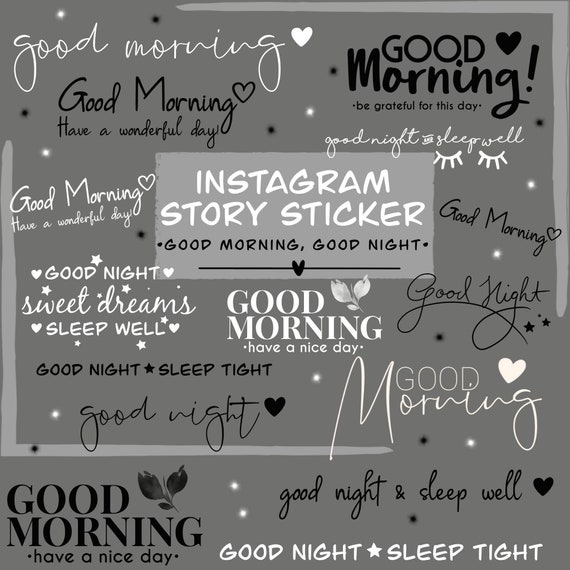 good morning
GOOD
Morning!
•be grateful for this day•
Good Morning
Have a wonderful day!
good night and sleep well
INSTAGRAM
STORY STICKER
•GOOD MORNING, GOOD NIGHT•
Good Morning
Have a wonderful day!
Good Morning
GOOD NIGHT
sweet dreams
SLEEP WELL
GOOD
MORNING
•have a nice day•
Good Night
GOOD NIGHT★SLEEP TIGHT
GOOD
Morning
good night
GOOD
MORNING
•have a nice day•
good night & sleep well
GOOD NIGHT★SLEEP TIGHT